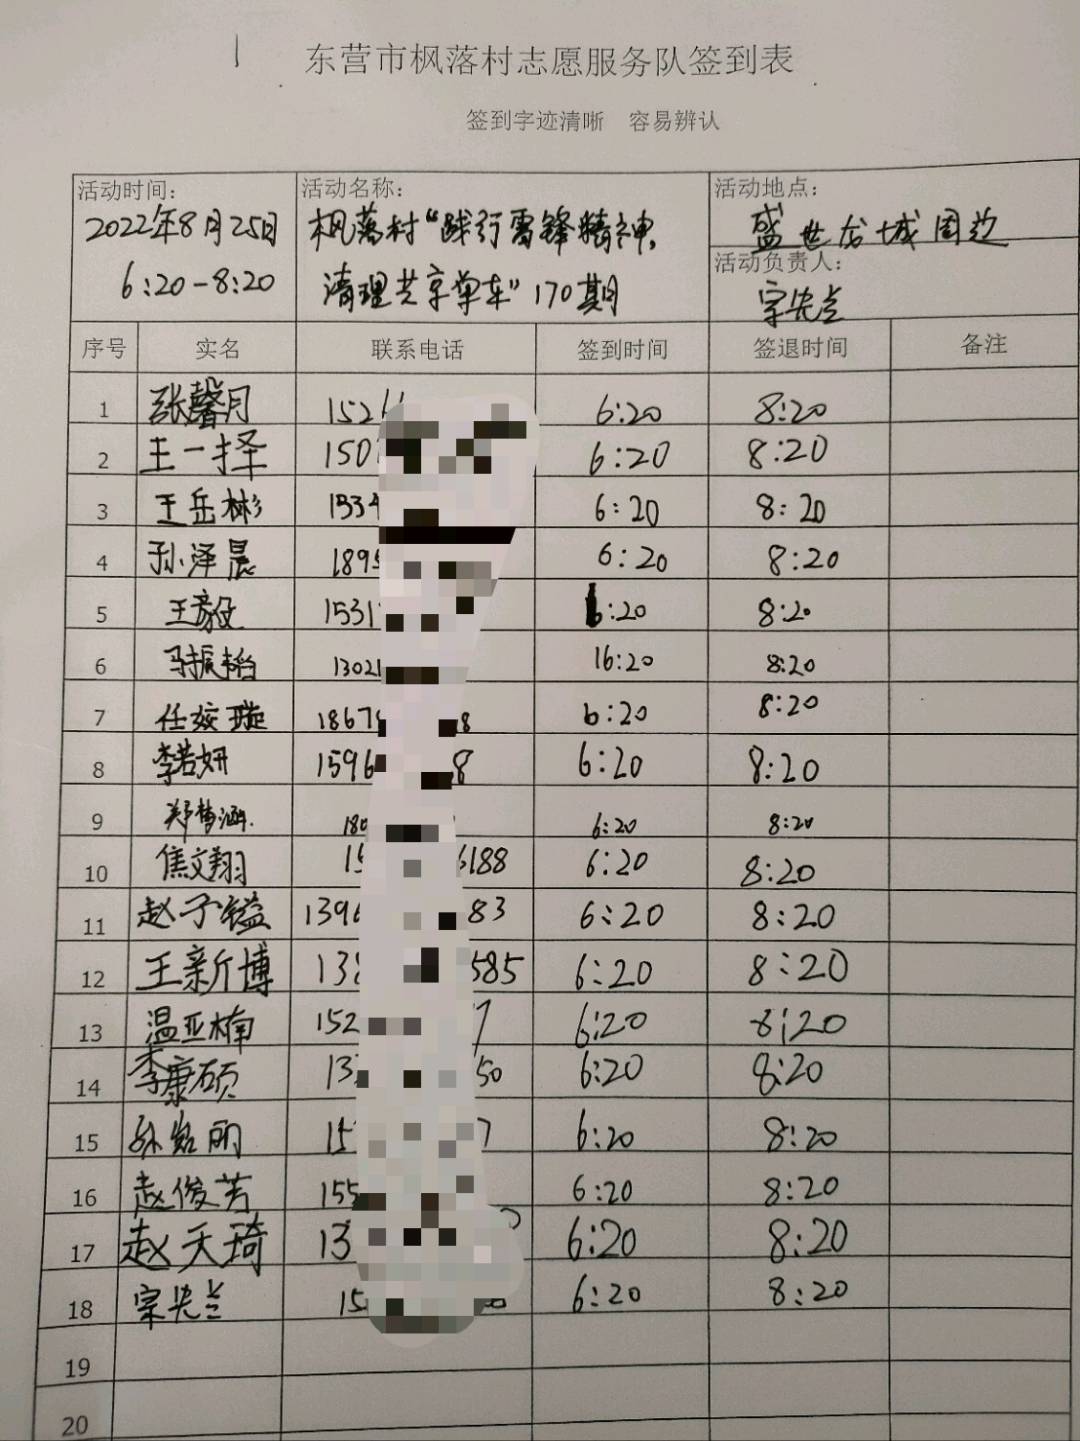 东营市枫落村志愿服务队签到表
签到字迹清晰 容易辨认
活动时间：
2022年8月25日
6:20-8:20
活动名称：
枫落村“践行雷锋精神，
清理共享单车”170期
活动地点：
盛世龙城周边
活动负责人：
宗先兰
序号 实名 联系电话 签到时间 签退时间 备注
1 张馨月 152 6:20 8:20
2 王一择 150 6:20 8:20
3 王岳彬 1534 6:20 8:20
4 孙泽晨 1895 6:20 8:20
5 王毅 1531 6:20 8:20
6 马振韬 13021 16:20 8:20
7 任姣璇 1867 8 6:20 8:20
8 李若妍 1596 8 6:20 8:20
9 郑梦涵 180 6:20 8:20
10 焦文翔 15 6188 6:20 8:20
11 赵子镒 1396 83 6:20 8:20
12 王新博 138 585 6:20 8:20
13 温亚楠 152 7 6:20 8:20
14 李康硕 13 50 6:20 8:20
15 孙铭明 15 7 6:20 8:20
16 赵俊芳 155 6:20 8:20
17 赵天琦 13 6:20 8:20
18 宗先兰 15 6:20 8:20
19
20